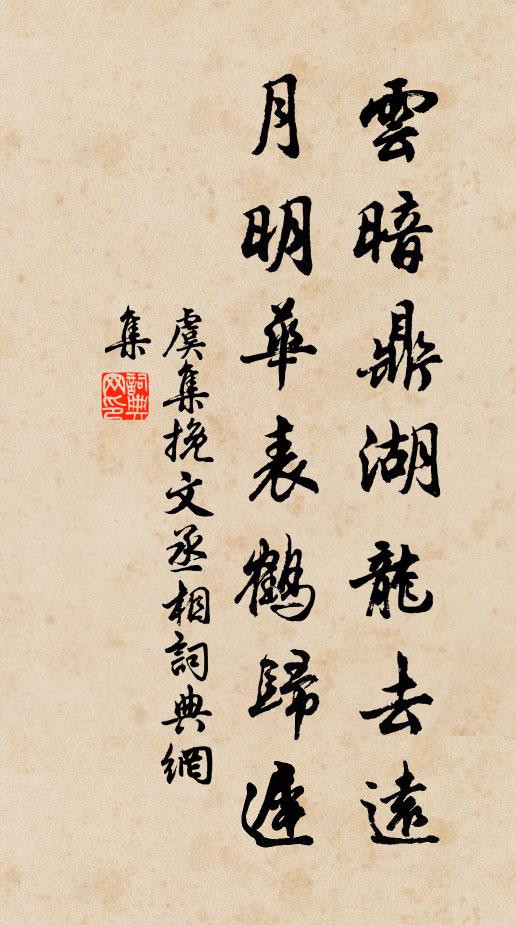 雲暗鼎湖龍去遠
月明華表鶴歸遲
虞集挽文丞相詞典網
集
詞典
网印